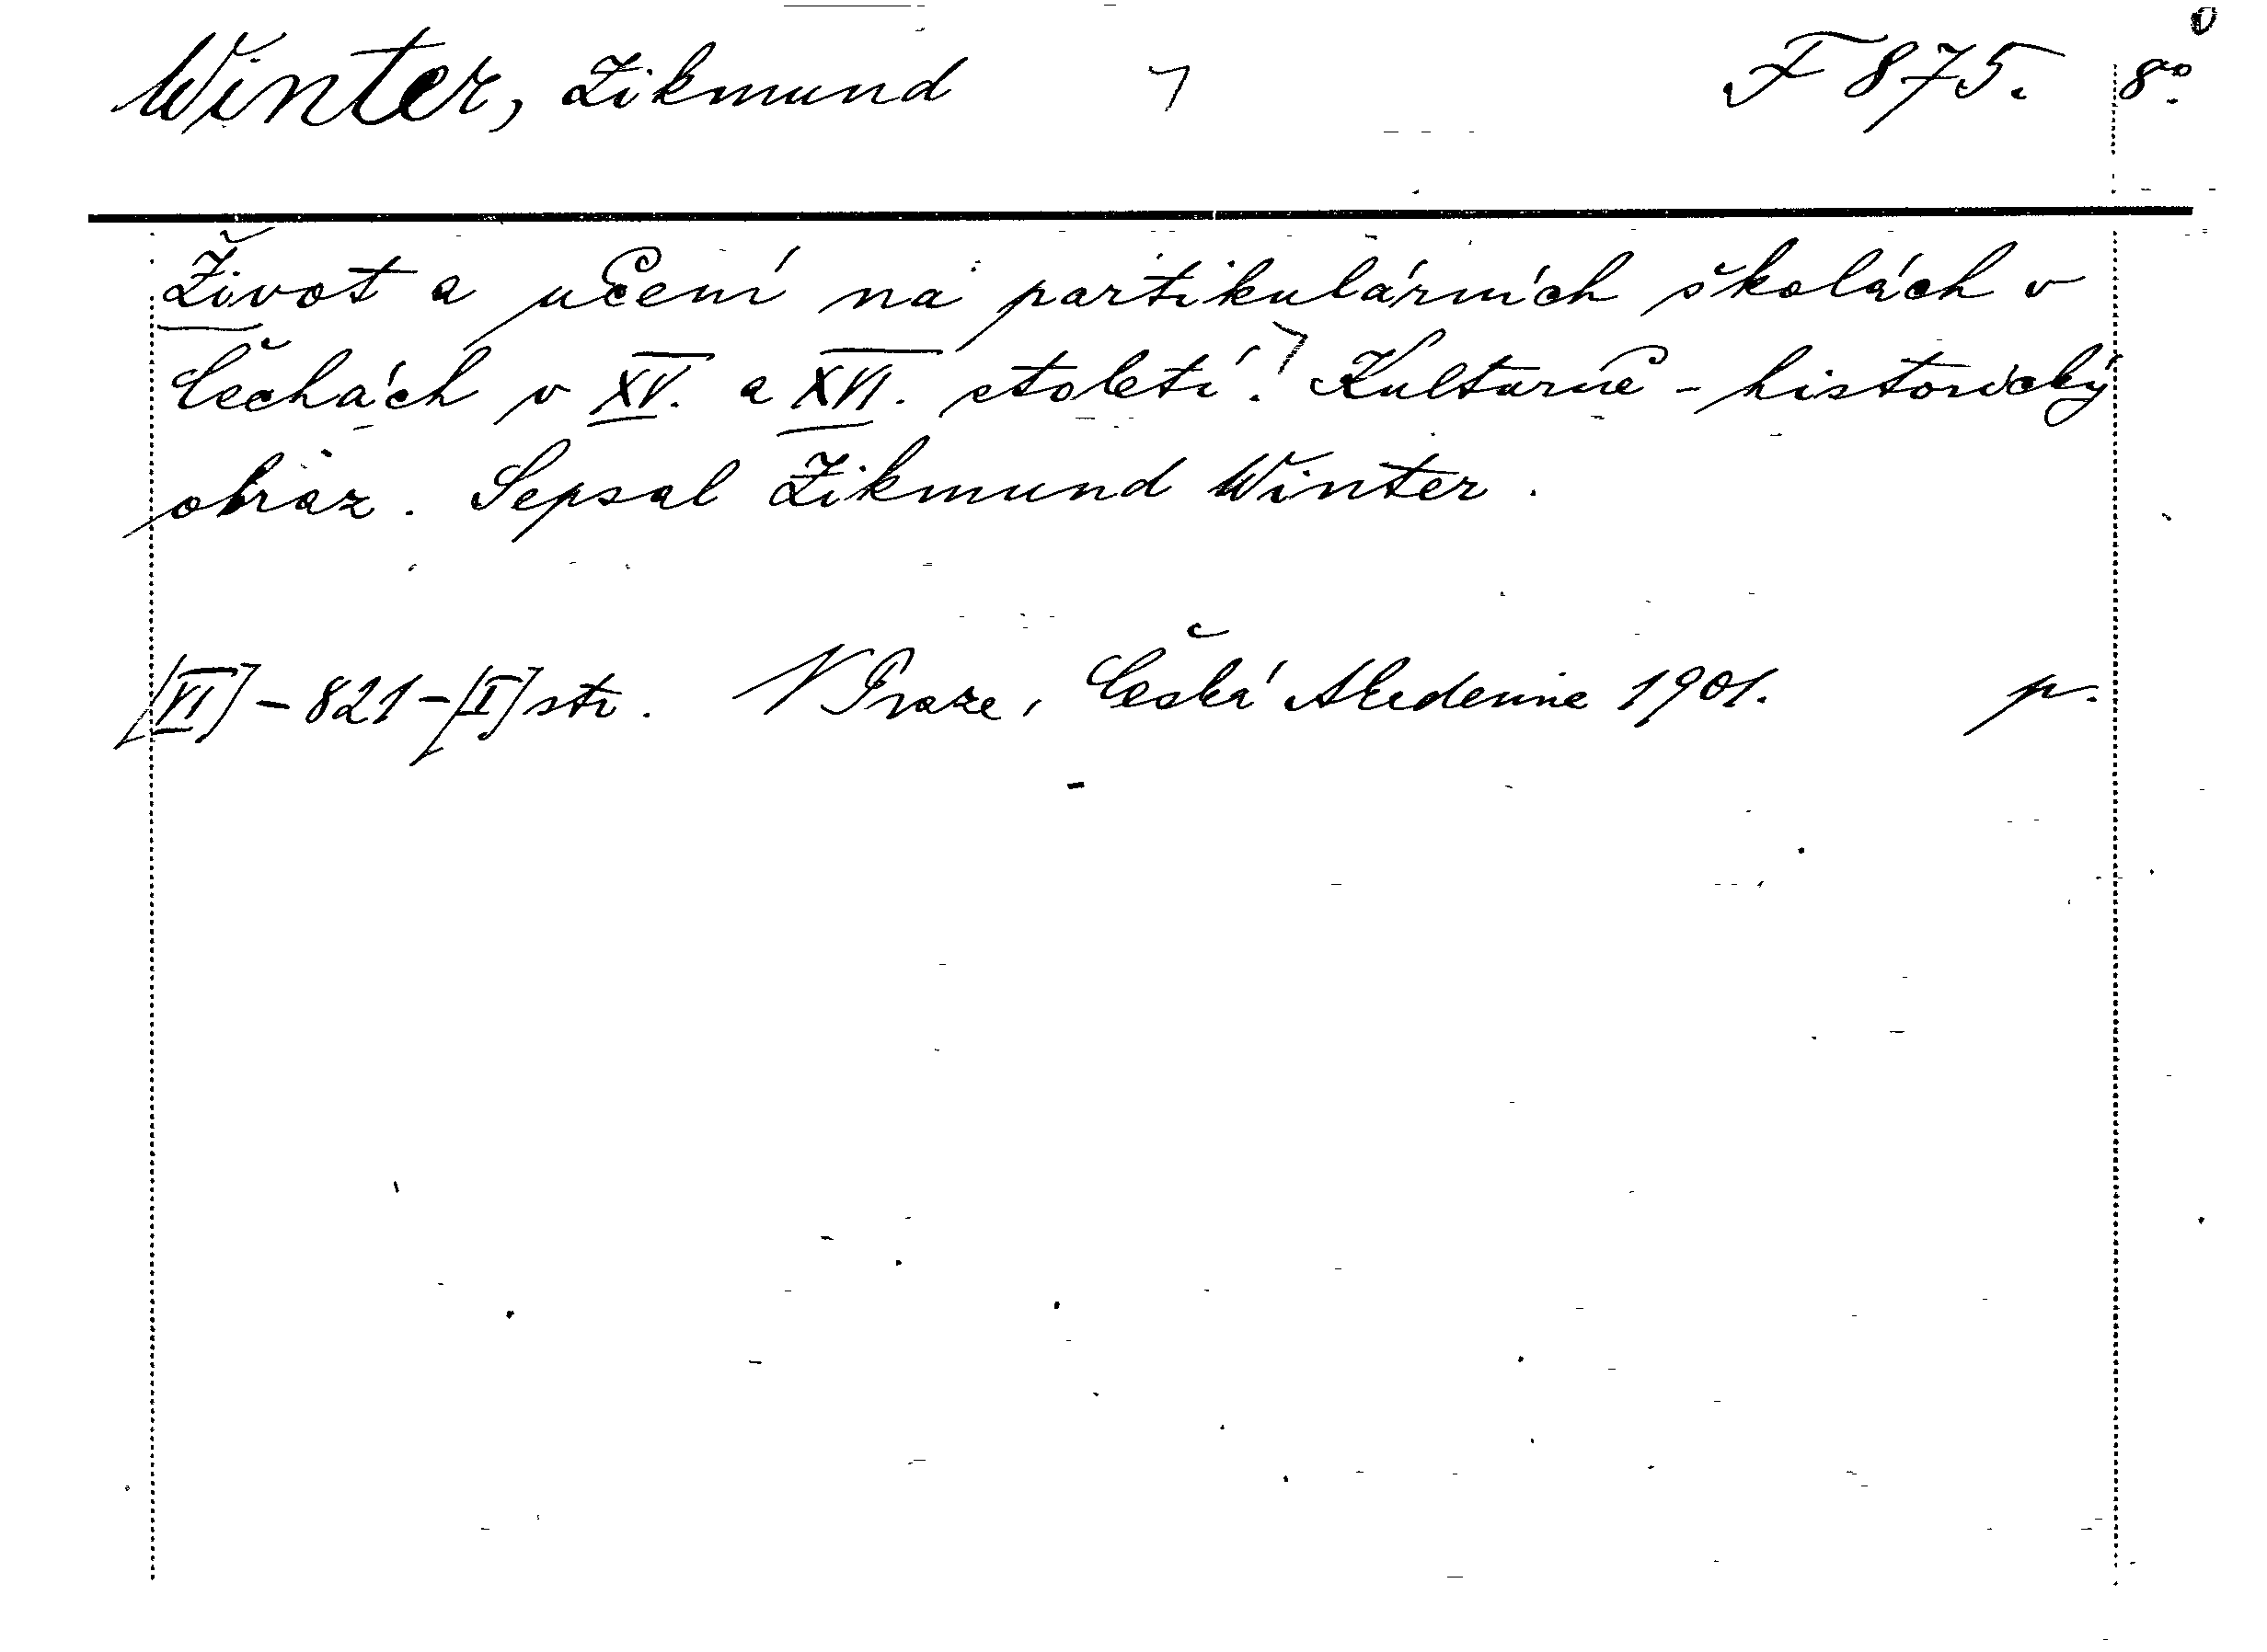 Winter, Zikmund F 875. 8°.
Život a učení na partikulárních školách v
Čechách v XV. a XVI. století. Kulturně-historický
obraz. Sepsal Zikmund Winter.
[VI]-821-[I] str. V Praze, Česká Akademie 1901. p.